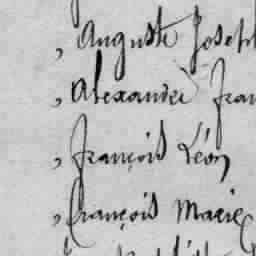 , Auguste Joseph
, Alexandre Fran
, François Léon
, François Marie